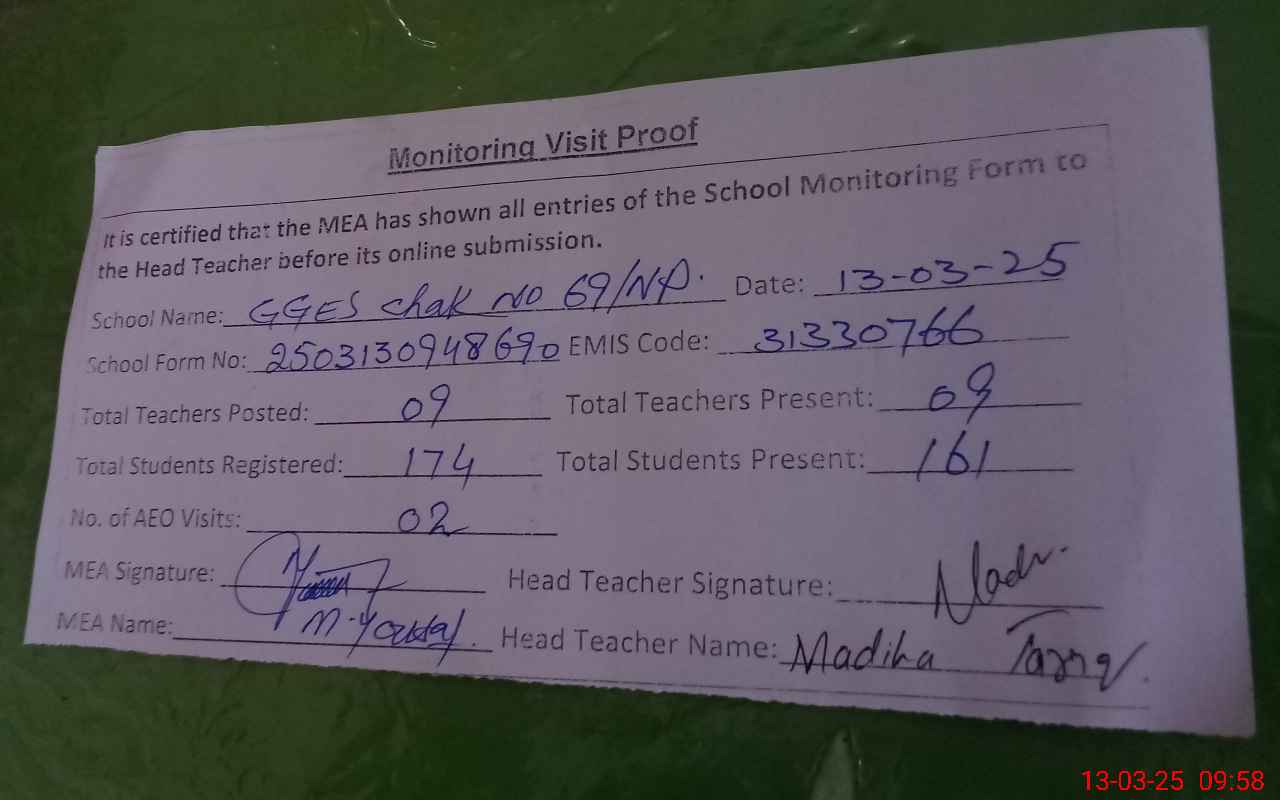 Monitoring Visit Proof
It is certified that the MEA has shown all entries of the School Monitoring Form to
the Head Teacher before its online submission.
School Name: GGES Chak NO 69/NP. Date: 13-03-25
School Form No: 2503130948690 EMIS Code: 31330766
Total Teachers Posted: 09 Total Teachers Present: 09
Total Students Registered: 174 Total Students Present: 161
No. of AEO Visits: 02
MEA Signature: Head Teacher Signature:
MEA Name: M. Yousaf. Head Teacher Name: Madiha Tariq.
13-03-25 09:58